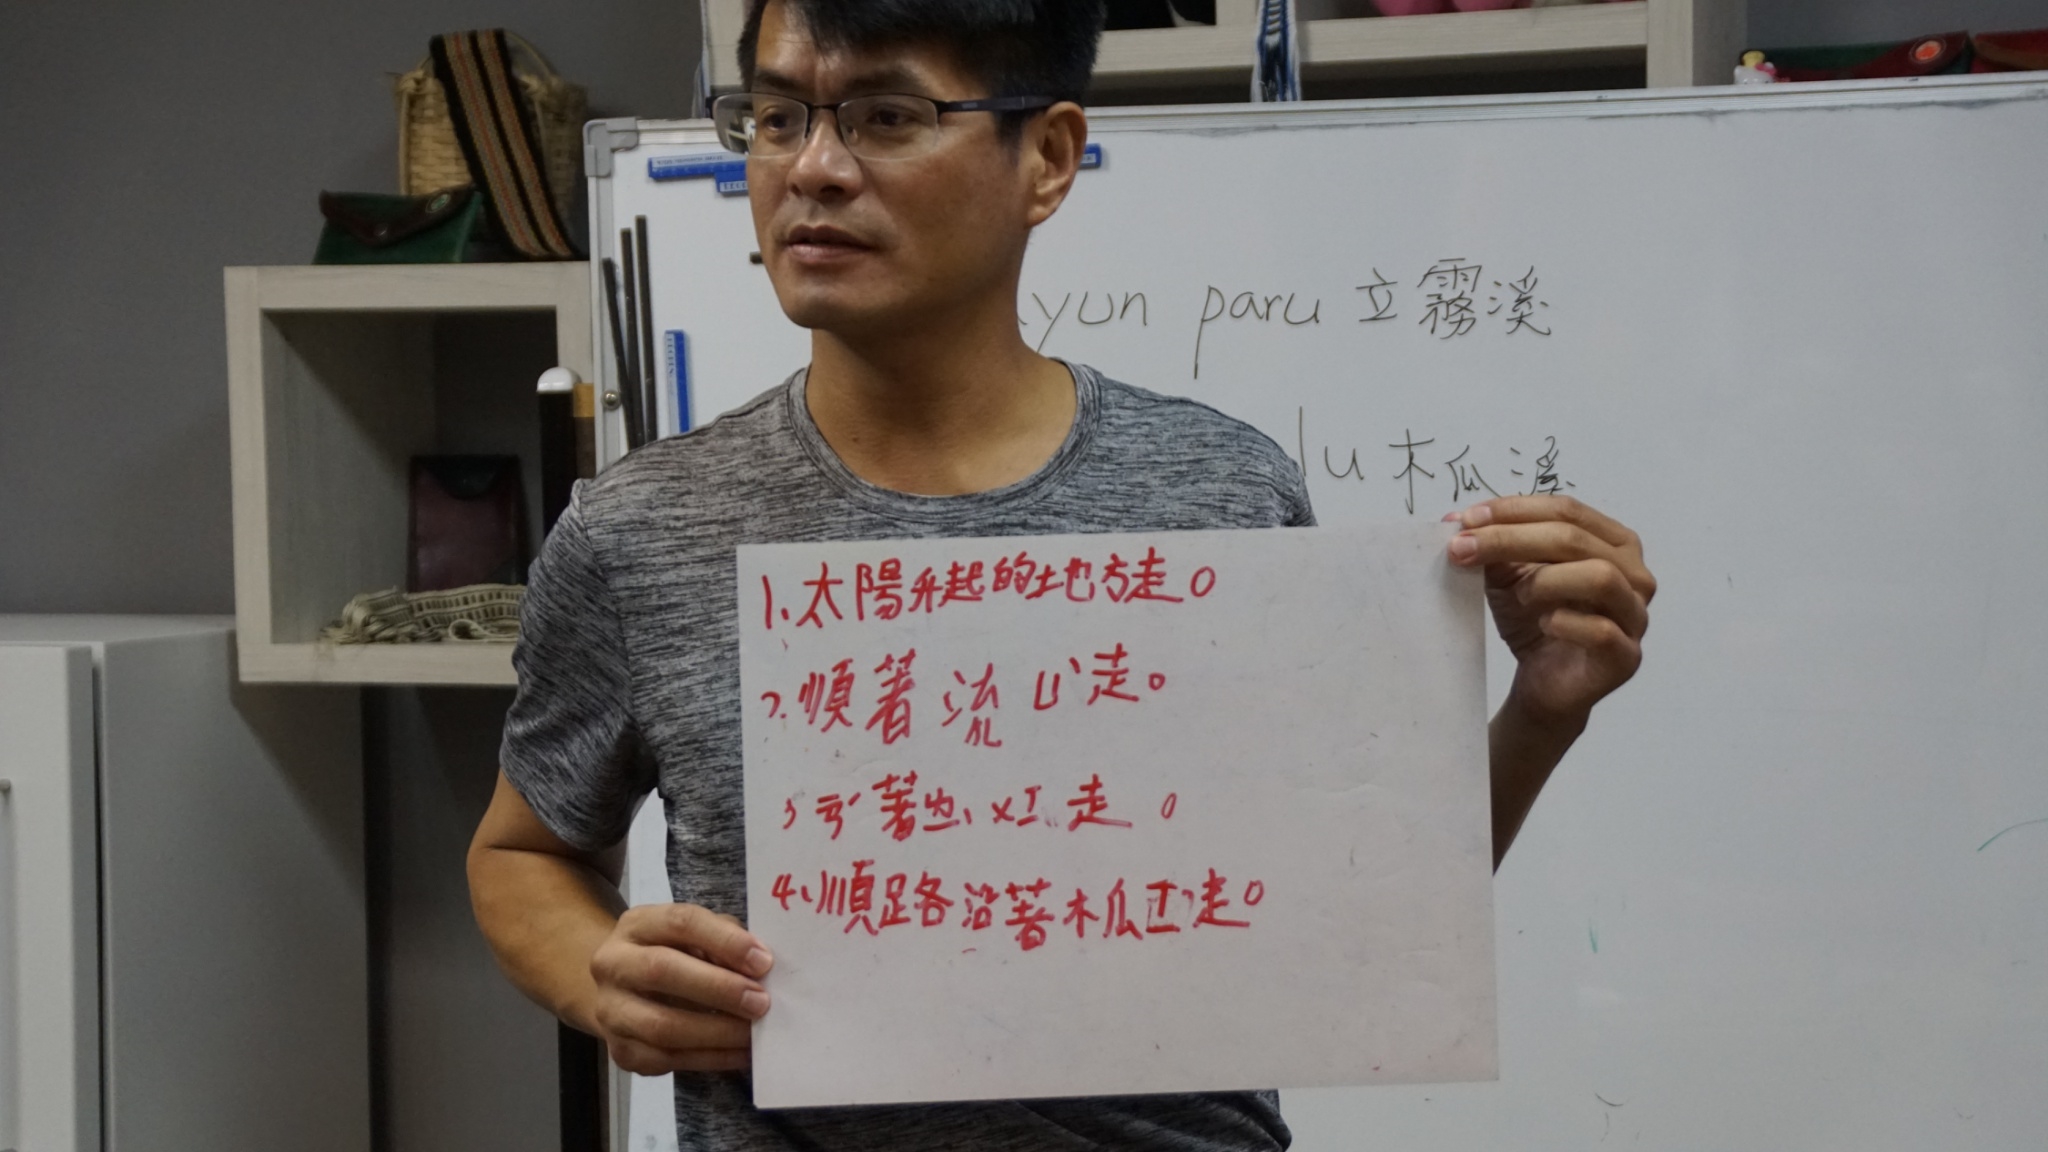 yun paru 立霧溪
lu 木瓜溪
1、太陽升起的地方走。
2.順著流ㄩˋ走。
3 ㄧㄢˊ著 走。
4、順路沿著木瓜ㄒㄧ走。